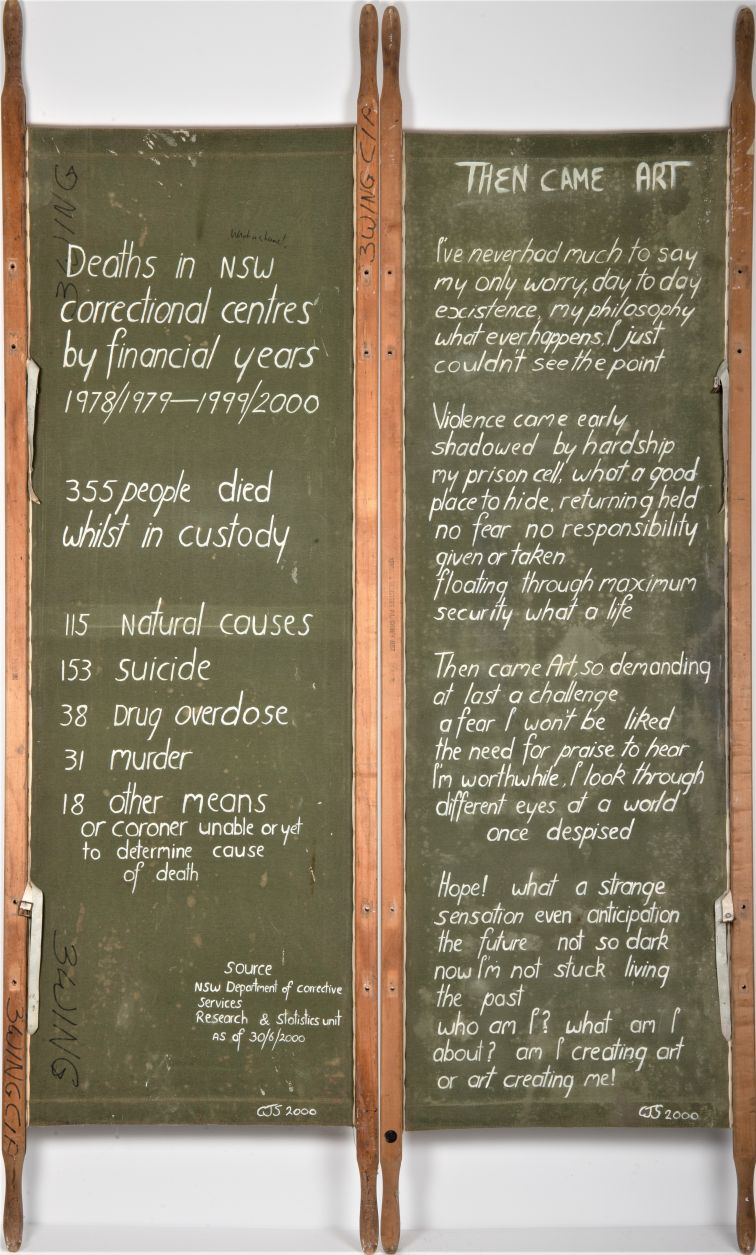 3 WING
What a shame!
Deaths in NSW
correctional centres
by financial years
1978/1979—1999/2000
355 people died
whilst in custody
115 Natural causes
153 Suicide
38 Drug overdose
31 murder
18 other means
or coroner unable or yet
to determine cause
of death
Source
NSW Department of corrective
Services
Research & Statistics unit
AS of 30/6/2000
3WING
CJS 2000
3WING CIP
3WING CIP
THEN CAME ART
I've never had much to say
my only worry, day to day
excistence, my philosophy
what ever happens, I just
couldn't see the point
Violence came early
shadowed by hardship
my prison cell, what a good
place to hide, returning held
no fear no responsibility
given or taken
floating through maximum
security what a life
Then came Art, so demanding
at last a challenge
a fear I won't be liked
the need for praise to hear
I'm worthwhile, I look through
different eyes at a world
once despised
Hope! what a strange
sensation even anticipation
the future not so dark
now I'm not stuck living
the past
who am I? what am I
about? am I creating art
or art creating me!
CJS 2000